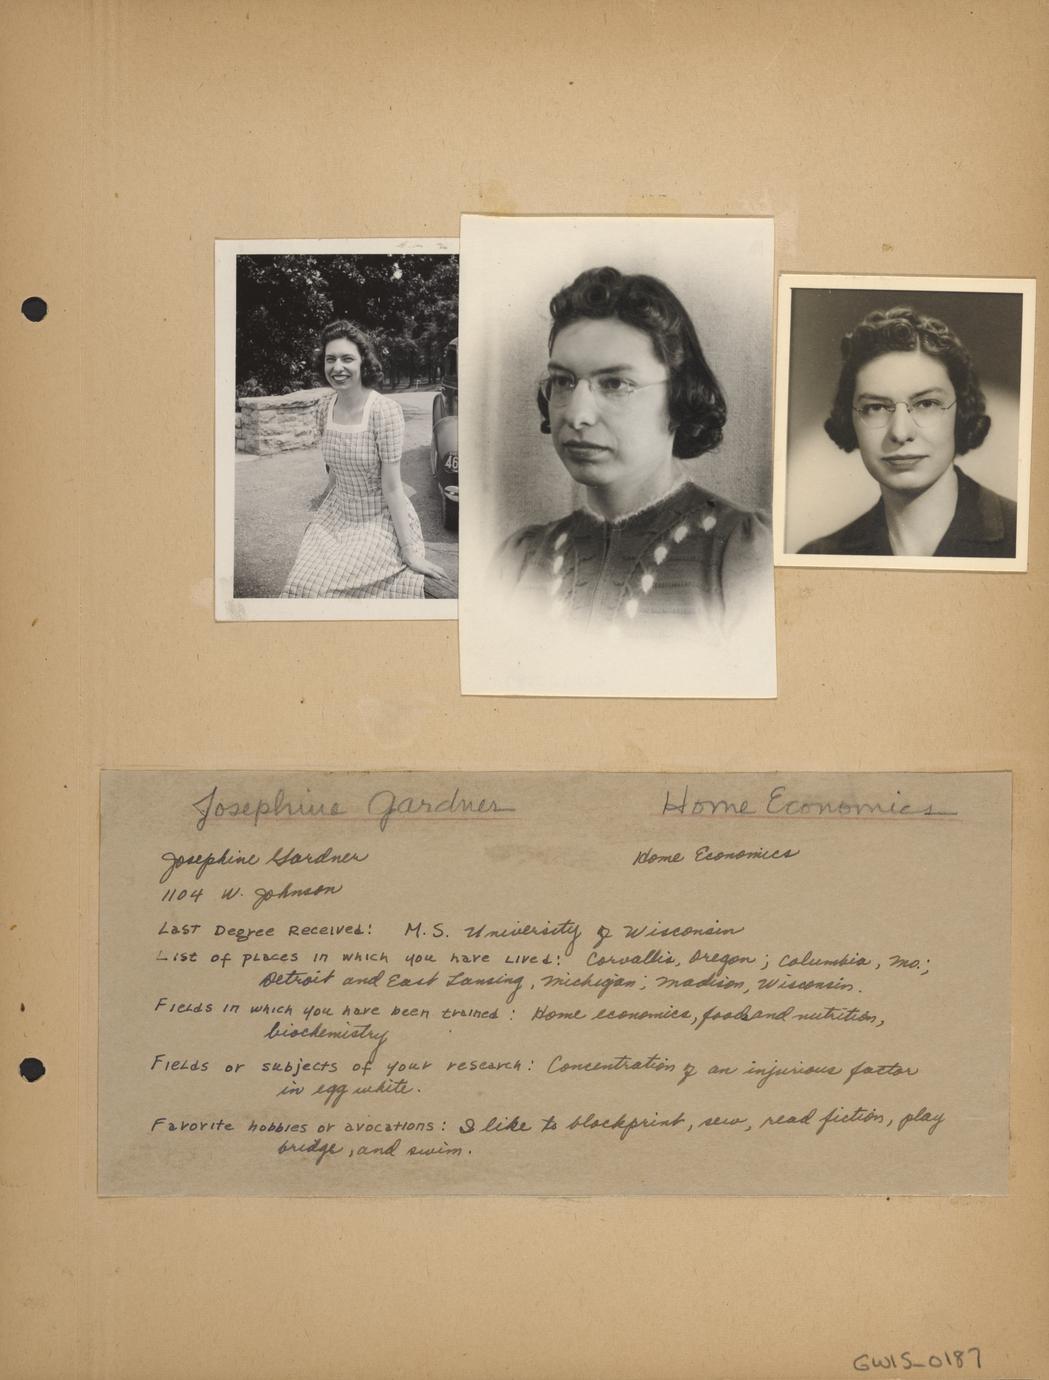 46
Josephine Gardner Home Economics
Josephine Gardner Home Economics
1104 W. Johnson
Last Degree Received: M.S. University of Wisconsin
List of places in which you have Lived: Corvallis, Oregon; Columbia, Mo.;
Detroit and East Lansing, Michigan; Madison, Wisconsin.
Fields in which you have been trained: Home economics, foods and nutrition,
biochemistry
Fields or subjects of your research: Concentration of an injurious factor
in egg white.
Favorite hobbies or avocations: I like to blockprint, sew, read fiction, play
bridge, and swim.
GWIS_0187